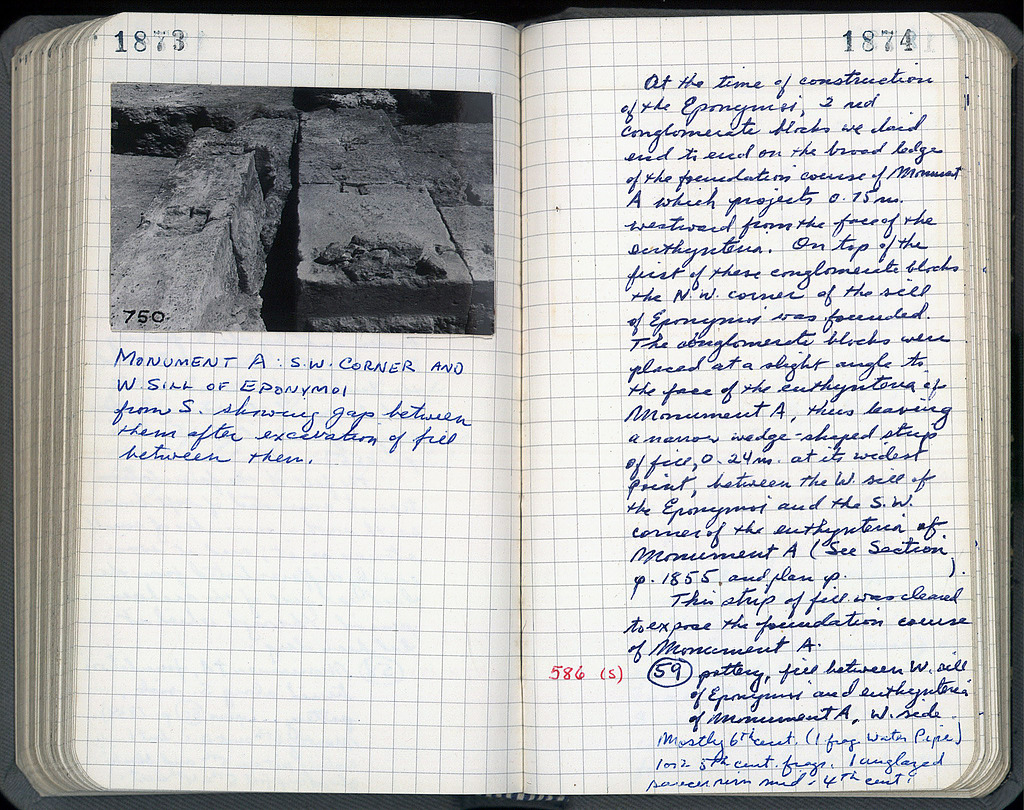 1873
750
MONUMENT A: S.W. CORNER AND
W. SILL OF EPONYMOI
from S. showing gap between
them after excavation of fill
between them.
1874
At the time of construction
of the Eponymoi, 2 red
conglomerate blocks we laid
end to end on the broad ledge
of the foundation course of Monument
A which projects 0.75 m.
westward from the face of the
euthynteria. On top of the
first of these conglomerate blocks
the N.W. corner of the sill
of Eponymoi was founded.
The conglomerate blocks were
placed at a slight angle to
the face of the euthynteria of
Monument A, thus leaving
a narrow wedge-shaped strip
of fill, 0.24 m. at its widest
point, between the W. sill of
the Eponymoi and the S.W.
corner of the euthynteria of
Monument A (See Section,
p. 1855 and plan p. ).
This strip of fill was cleared
to expose the foundation course
of Monument A.
586 (S) 59 pottery, fill between W. sill
of Eponymoi and euthynteria
of Monument A, W. side.
Mostly 6th cent. (1 frag Water Pipe)
1 or 2 5th cent. frags. 1 unglazed
saucer rim mid-4th cent.